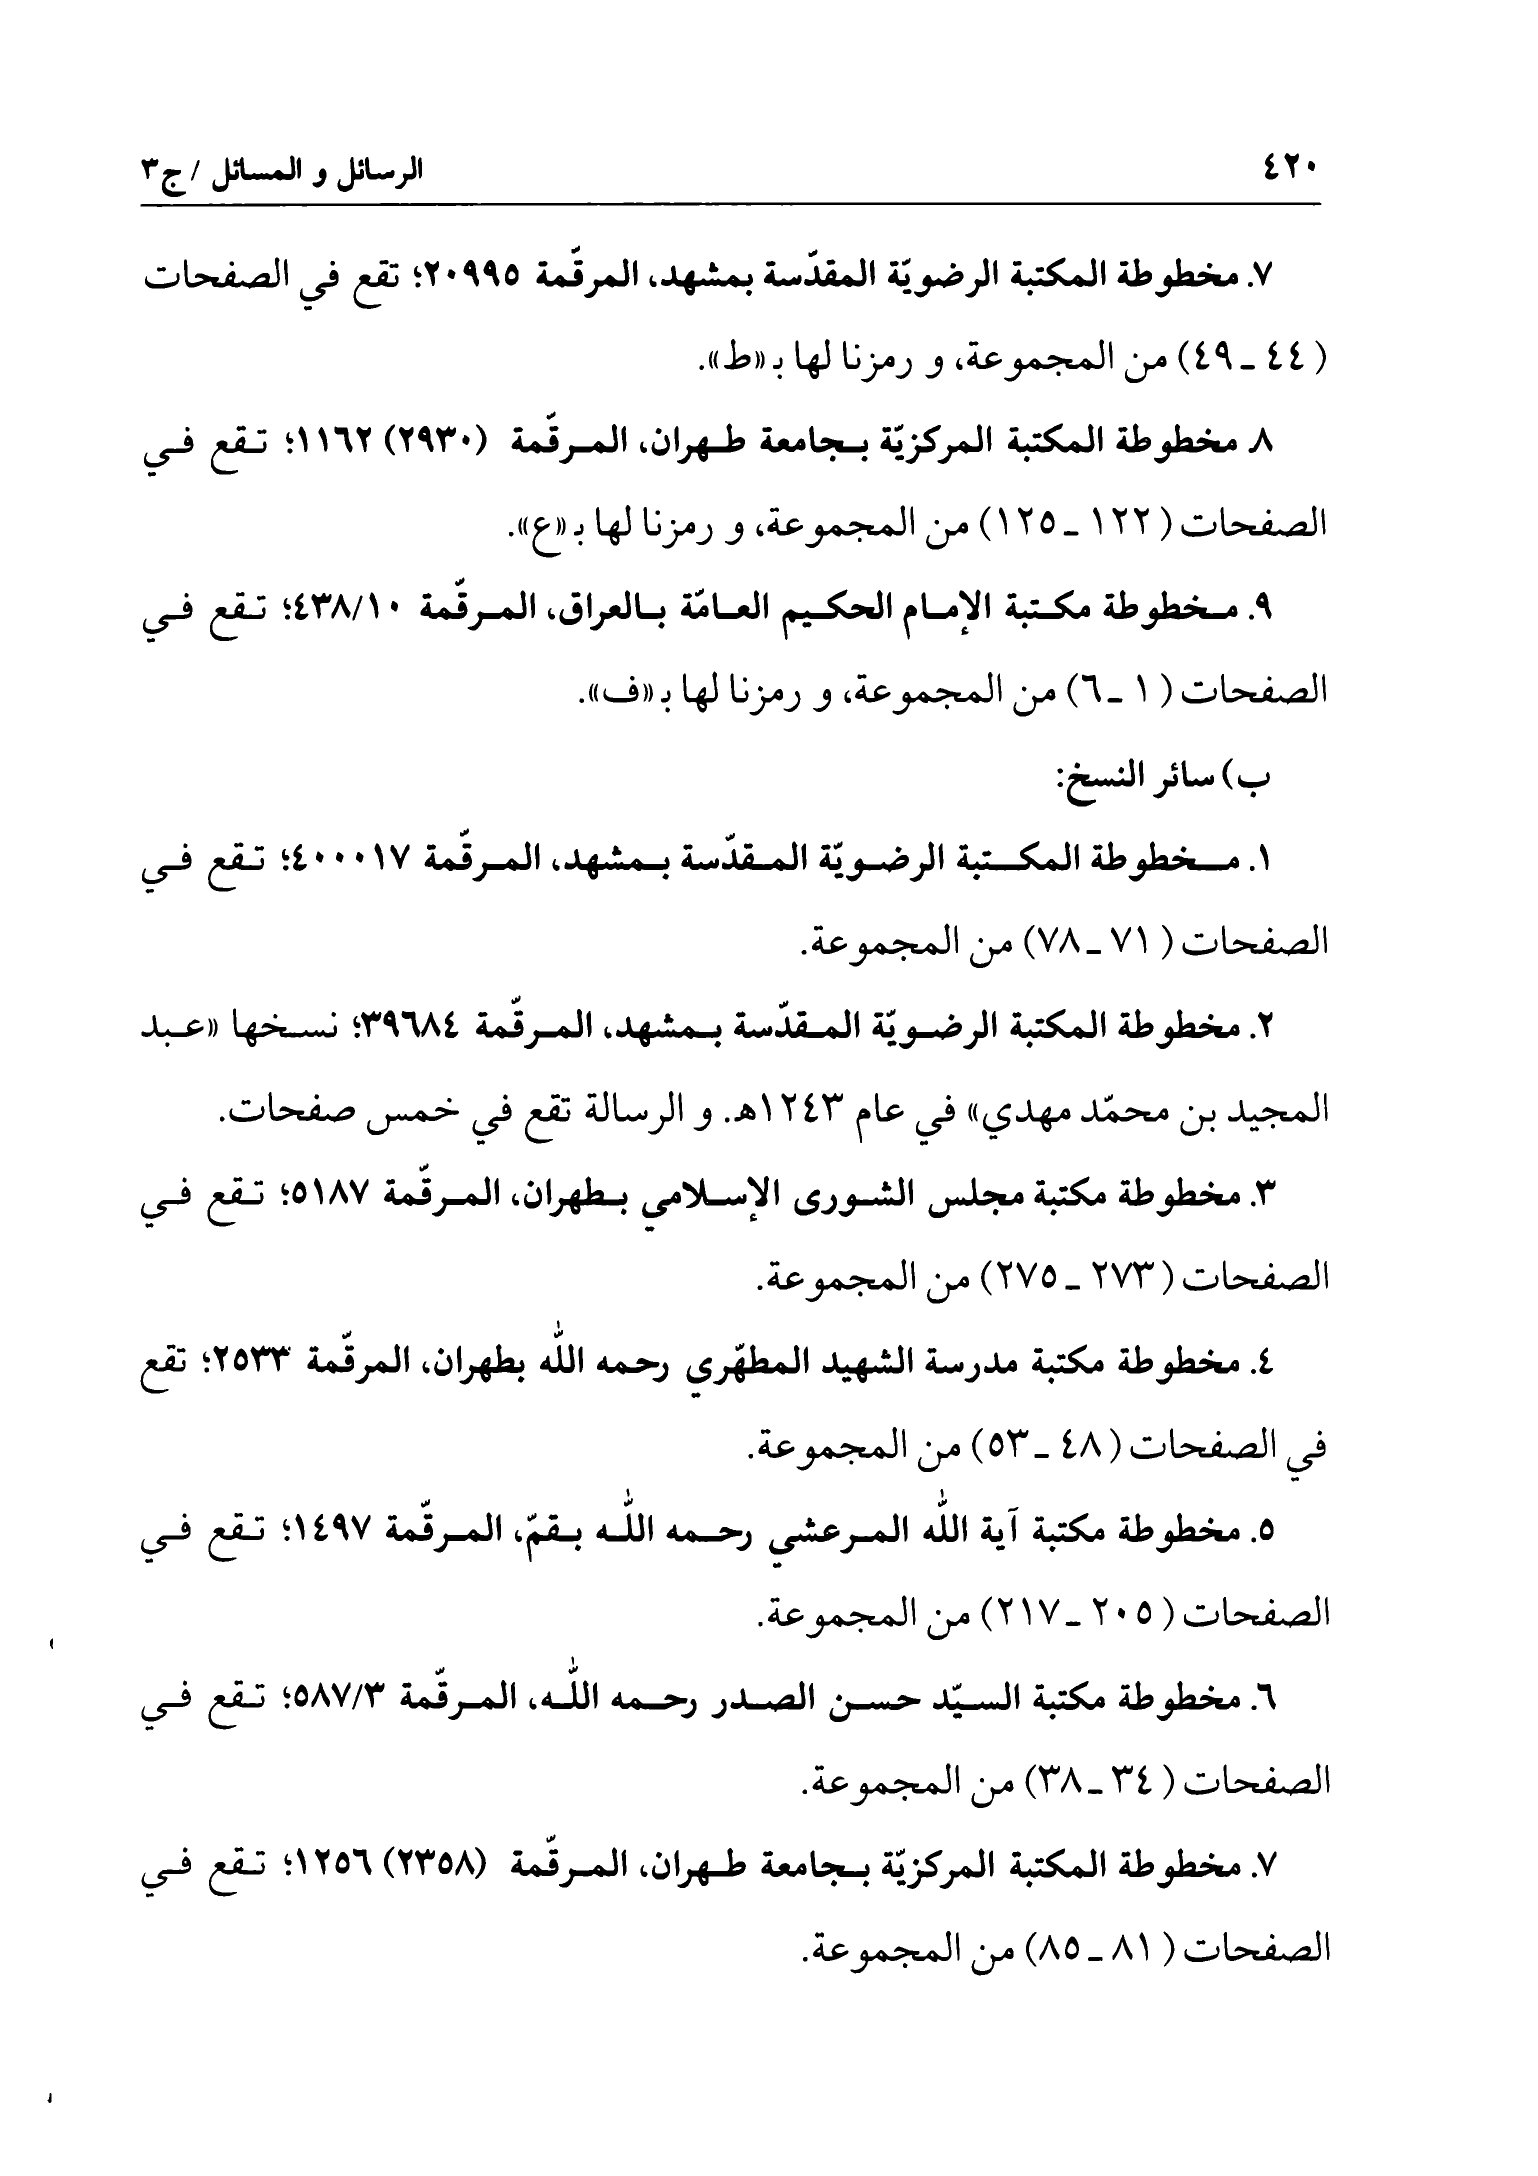 ٤٢٠
الرسائل و المسائل / ج٣
٧. مخطوطة المكتبة الرضويّة المقدّسة بمشهد، المرقّمة ٢٠٩٩٥؛ تقع في الصفحات
(٤٤ ـ ٤٩) من المجموعة، و رمزنا لها بـ «ط».
٨. مخطوطة المكتبة المركزيّة بـجامعة طـهران، المـرقّمة (٢٩٣٠) ١١٦٢؛ تـقع فـي
الصفحات (١٢٢ ـ ١٢٥) من المجموعة، و رمزنا لها بـ «ع».
٩. مـخطوطة مكـتبة الإمـام الحكـيم العـامّة بـالعراق، المـرقّمة ٤٣٨/١٠؛ تـقع فـي
الصفحات (١ ـ ٦) من المجموعة، و رمزنا لها بـ «ف».
ب) سائر النسخ:
١. مـخطوطة المكـتبة الرضـويّة المـقدّسة بـمشهد، المـرقّمة ٤٠٠٠١٧؛ تـقع فـي
الصفحات (٧١ ـ ٧٨) من المجموعة.
٢. مخطوطة المكتبة الرضـويّة المـقدّسة بـمشهد، المـرقّمة ٣٩٦٨٤؛ نسـخها «عـبد
المجيد بن محمّد مهدي» في عام ١٢٤٣هـ. و الرسالة تقع في خمس صفحات.
٣. مخطوطة مكتبة مجلس الشـورى الإسـلامي بـطهران، المـرقّمة ٥١٨٧؛ تـقع فـي
الصفحات (٢٧٣ ـ ٢٧٥) من المجموعة.
٤. مخطوطة مكتبة مدرسة الشهيد المطهّري رحمه اللّٰه بطهران، المرقّمة ٢٥٣٣؛ تقع
في الصفحات (٤٨ ـ ٥٣) من المجموعة.
٥. مخطوطة مكتبة آية اللّٰه المـرعشي رحـمه اللّٰـه بـقمّ، المـرقّمة ١٤٩٧؛ تـقع فـي
الصفحات (٢٠٥ ـ ٢١٧) من المجموعة.
٦. مخطوطة مكتبة السـيّد حسـن الصـدر رحـمه اللّٰـه، المـرقّمة ٥٨٧/٣؛ تـقع فـي
الصفحات (٣٤ ـ ٣٨) من المجموعة.
٧. مخطوطة المكتبة المركزيّة بـجامعة طـهران، المـرقّمة (٢٣٥٨) ١٢٥٦؛ تـقع فـي
الصفحات (٨١ ـ ٨٥) من المجموعة.